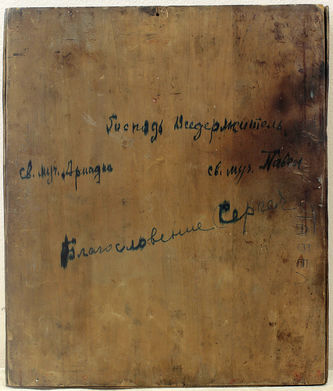 Господь Вседержитель
св. муч. Ариадна св. муч. Павел
Благословение Сергея